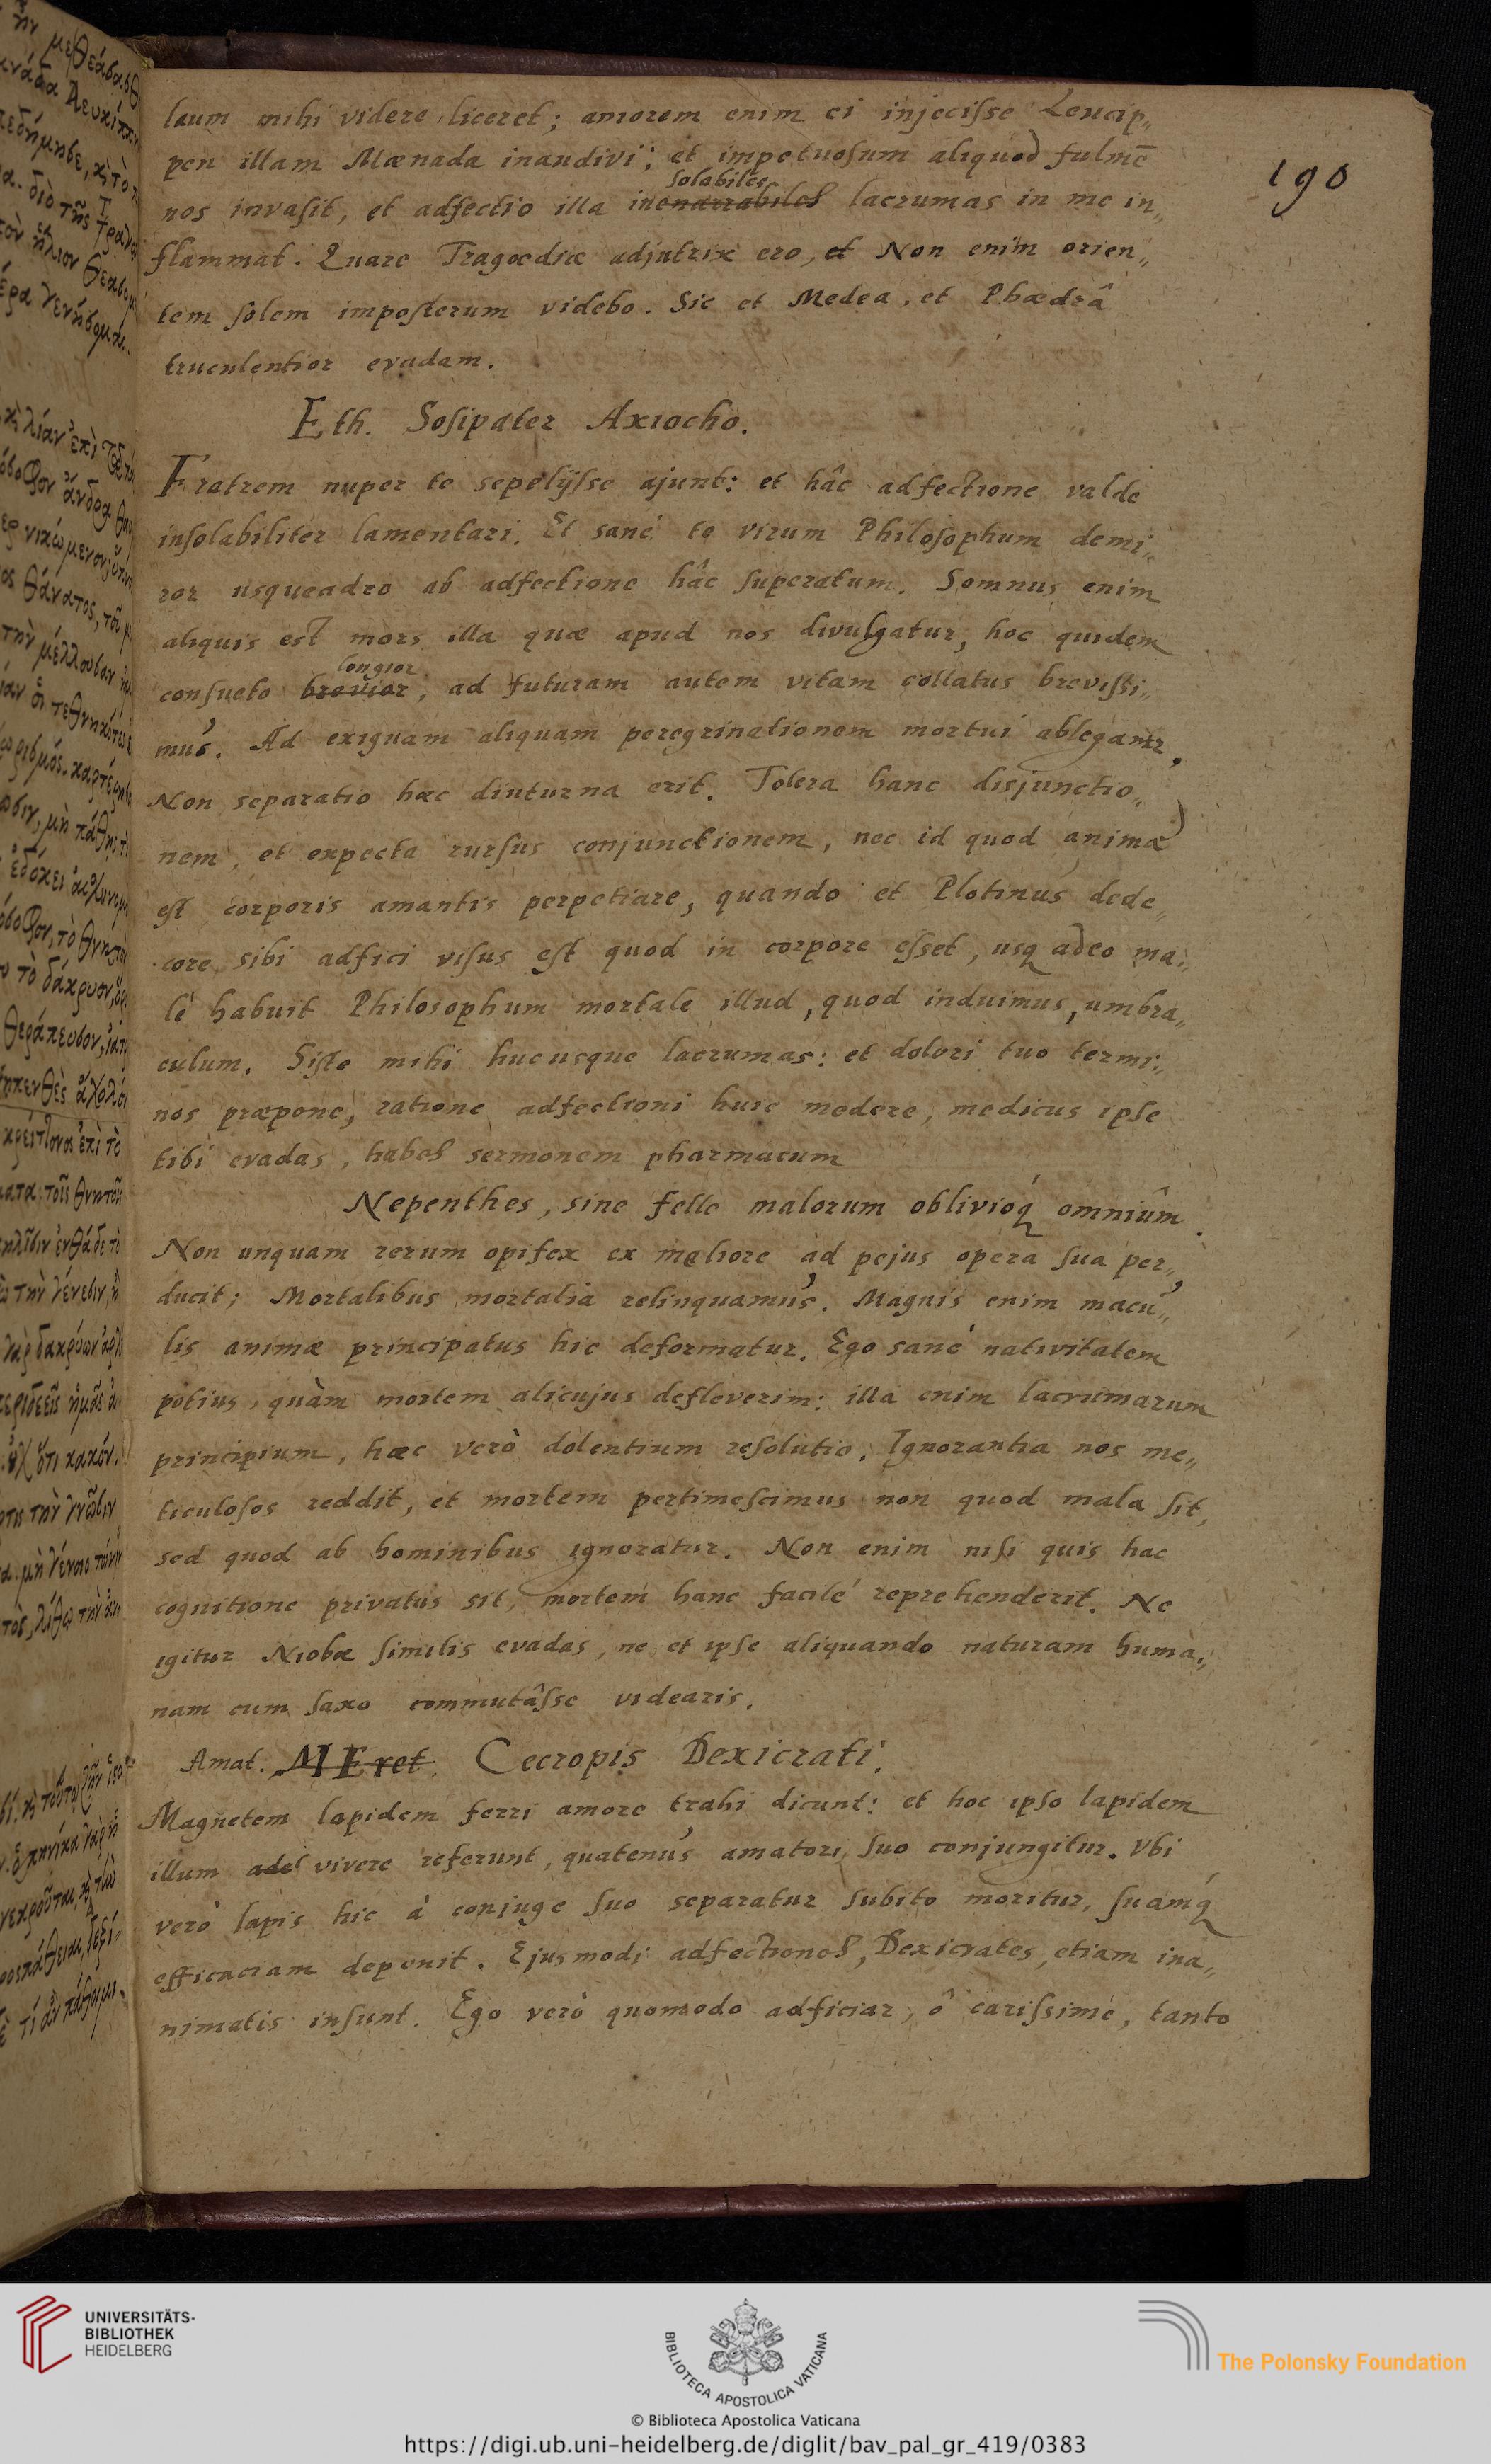 190
laum mihi videre liceret; amorem enim ei injecisse Leucip„
pen illam Mænada inaudivi; et impetuosum aliquod fulmē
nos invasit, et adfectio illa inenarrabiles solabiles lacrumas in me in„
flammat. Quare Tragoediæ adjutrix ero, et Non enim orien„
tem solem imposterum videbo. Sic et Medea, et Phædrâ
truculentior evadam.
Eth. Sosipater Axiocho.
Fratrem nuper te sepelijsse ajunt: et hâc adfectione valde
insolabiliter lamentari. Et sanè te virum Philosophum demi„
ror usqueadeo ab adfectione hâc superatum. Somnus enim
aliquis est mors illa quæ apud nos divulgatur, hoc quidem
consueto brevior longior, ad futuram autem vitam collatus brevissi„
mus. Ad exiguam aliquam peregrinationem mortui ablegantr,
Non separatio hæc diuturna erit. Tolera hanc disjunctio„
nem, et expecta rursus conjunctionem, nec id quod animæ
est corporis amantis perpetiare, quando et Plotinus dede„
core sibi adfici visus est quod in corpore esset, usq adeo ma„
lè habuit Philosophum mortale illud, quod induimus, umbra„
culum. Siste mihi hucusque lacrumas: et dolori tuo termi„
nos præpone, ratione adfectioni huic medere, medicus ipse
tibi evadas, habes sermonem pharmacum
Nepenthes, sine felle malorum oblivióq omniûm.
Non unquam rerum opifex ex meliore ad pejus opera sua per„
ducit; Mortalibus mortalia relinquamus. Magnis enim macu„
lis animæ principatus hic deformatur. Ego sanè nativitatem
potius, quàm mortem alicujus defleverim: illa enim lacrumarum
principium, hæc verò dolentium resolutio. Ignorantia nos me„
ticulosos reddit, et mortem pertimescimus non quod mala sit,
sed quod ab hominibus ignoratur. Non enim nisi quis hac
cognitione privatus sit, mortem hanc facilè reprehenderit. Ne
igitur Niobæ similis evadas, ne et ipse aliquando naturam huma„
nam cum saxo commutâsse videaris.
Amat. MEret. Cecropis Dexicrati.
Magnetem lapidem ferri amore trahi dicunt: et hoc ipso lapidem
illum adel vivere referunt, quatenus amatori suo conjungitur. Vbi
verò lapis hic à conjuge suo separatur subito moritur, suamq́
efficaciam deponit. Ejusmodi adfectiones, Dexicrates, etiam ina„
nimatis insunt. Ego verò quomodo adficiar, ô carissime, tanto
UNIVERSITÄTS-
BIBLIOTHEK
HEIDELBERG
BIBLIOTECA APOSTOLICA VATICANA
© Biblioteca Apostolica Vaticana
The Polonsky Foundation
https://digi.ub.uni-heidelberg.de/diglit/bav_pal_gr_419/0383